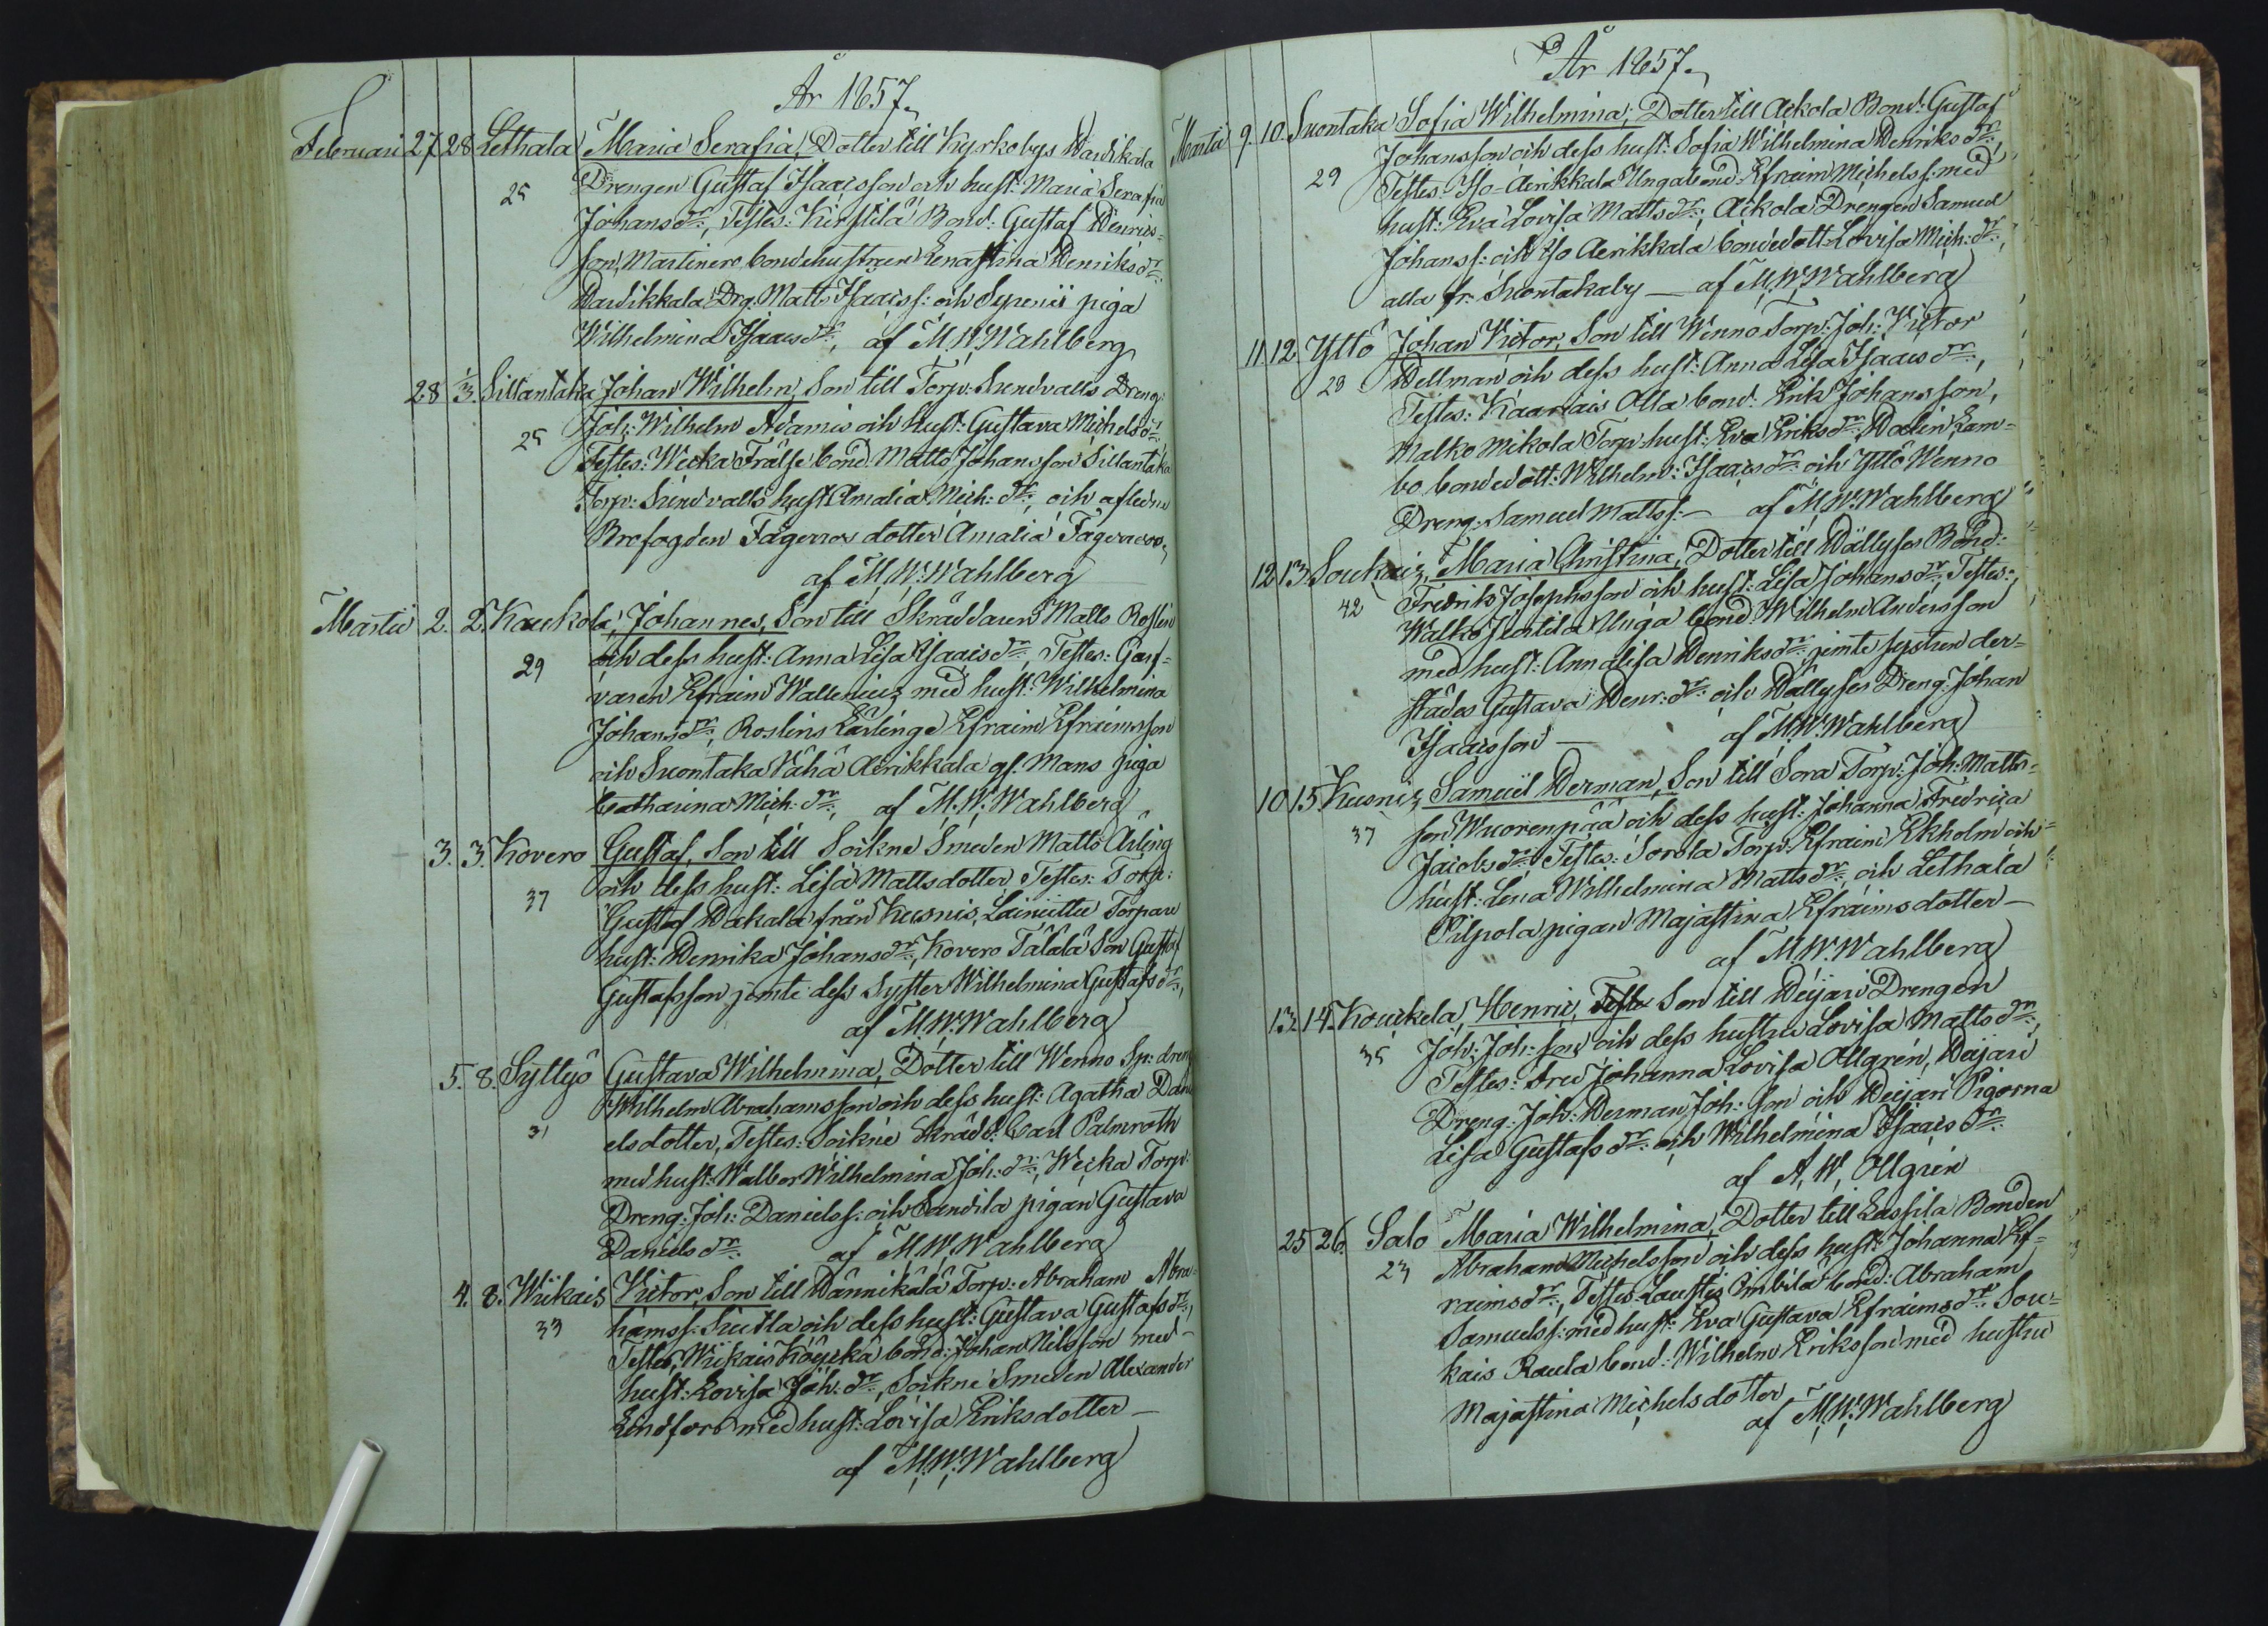 År 1857.
Februari 27 28 Lethala Maria Serafia, Dotter till Kyrkobys Hardikala
25 Drengen Gustaf Isacsson och hust: Maria Serafia
Johansdr, Testes: Kirstilä Bond: Gustaf Henrics-
son, Martinero bondehustrun Lenastina Henriksdr
Hardikkala Drg. Matts Isacss: och Syrenii piga
Wilhelmina Isacsdr, af M.W.Wahlberg
28 1/3. Sillantaka Johan Wilhelm, Son till Torp: Sundvalls Dreng:
25 Joh: Wilhelm Adamis och hust: Gustava Michelsdr
Testes: Wecka Frälse bond: Matts Johansson Sillantaka
Torp: Sundvalls hust Amalia Mich: dr, och afledne
Brofogden Fagerroos dotter Amalia Fagerroos,
af M.W.Wahlberg
Martii 2. 2. Kaukola, Johannes, Son till Skräddaren Matts Roslin
29 och dess hust: Anna Lisa Isacsdr, Testes: Garf-
varen Efraim Wallenius med hust: Wilhelmina
Johansdr, Roslins Lärlinge Efraim Efraimsson
och Suontaka Vähä Aerikkala gl. Mans piga
Catharina Mich: dr, af M.W.Wahlberg
3. 3. Kovero Gustaf, Son till Sockne Smeden Matts Ärling
37 och dess hust: Lisa Mattsdotter, Testes: Torp:
Gustaf Hakala från Kusnis, Lainittu Torpare
hust: Henrika Johansdr, Kovero Tälälä Son Gustaf
Gustafsson jemte dess Syster Wilhelmina Gustafsdr,
af M.W.Wahlberg
5. 8. Syllyö Gustava Wilhelmina, Dotter till Wenno Sp: dreng
31 Wilhelm Abrahamsson och dess hust: Agatha Dani
elsdotter, Testes: Sockne Skrädd: Carl Palmroth
med hust: Walbor Wilhelmina Joh: dr, Wecka Torp:
Dreng: Joh: Danielss: och Sandila pigan Gustava
Danielsdr. af M.W.Wahlberg
4. 8. Wiikais Victor, Son till Hännikälä Torp: Abraham Abra-
33 hamss: Suutla och dess hust: Gustava Gustafsdr,
Testes, Wiikais Köyckä bond: Johan Nilsson med
hust: Lovisa Joh: dr, Sockne Smeden Alexander
Lindfors med hust: Lovisa Eriksdotter —
af M.W.Wahlberg
År 1857.
Martii 9. 10. Suontaka Sofia Wilhelmina, Dotter till Ackola Bond: Gustaf
29 Johansson och dess hust: Sofia Wilhelmina Henriksdr,
Testes: Iso-Aerikkala Unga bond: Efraim Michelss: med
hust: Eva Lovisa Mattsdr, Ackola Drengen Samuel
Johanss: och Iso Aerikkala bondedott: Lovisa Mich: dr,
alla fr: Suontakaby — af M.W.Wahlberg
11. 12. Yttö Johan Victor, Son till Wenno Torp: Joh: Victor
23 Hellman och dess hust: Anna Lisa Isacsdr,
Testes: Kaariais Olla bond: Erik Johansson,
Malko Mikola Torp: hust: Eva Eriksdr, Dalin Lam-
bo bondedott: Wilhelm: Isacsdr och Yttö Wenno
Dreng: Samuel Mattss: — af M.W.Wahlberg
12 13. Soukais, Maria Christina, Dotter till Hällyses Bond:
42 Fredrik Josephsson och hust: Lisa Johansdr, Testes:
Walko Juntila Unga bond Wilhelm Andersson
med hust: Annalisa Henriksdr, jemte systern der-
städes Gustava Henr: dr och Hällyses Dreng: Johan
Isacsson — af M.W.Wahlberg
10 15 Kusnis, Samuel Herman, Son till Sora Torp: Joh: Matts-
37 son Wuorenpää och dess hust: Johanna Fredrica
Jacobsdr, Testes: Sorola Torp: Efraim Ekholm och
hust: Lena Wilhelmina Mattsdr, och Lethala
Pilpola pigan Majastina Efraimsdotter —
af M.W.Wahlberg
13. 14. Kouckela, Henric, Son till Heijari Drengen
35 Joh: Joh: son och dess hustru Lovisa Mattsdr,
Testes: Fru Johanna Lovisa Ollgrén, Heijari
Dreng: Joh: Herman Joh: son och Heijari Pigorna
Lisa Gustafsdr och Wilhelmina Isacsdr
af A, W, Ollgrén
25 26. Salo Maria Wilhelmina, Dotter till Lassila Bonden
23 Abraham Michelsson och dess hust: Johanna Ef-
raimsdr, Testes: Laustis Embilä bond: Abraham
Samuelss: med hust: Eva Gustava Efraimsdr, Sou-
kais Raula bond: Wilhelm Eriksson med hustru
Majastina Michelsdotter
af M.W.Wahlberg